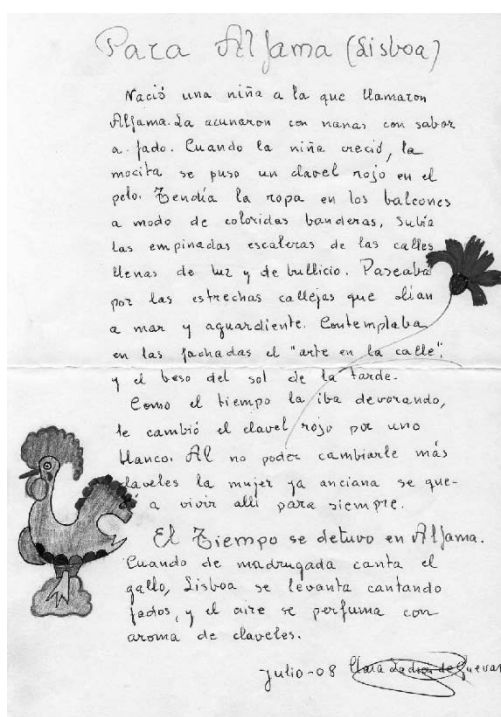 Para Alfama (Lisboa)
Nació una niña a la que llamaron
Alfama. La acunaron con nanas con sabor
a fado. Cuando la niña creció, la
mocita se puso un clavel rojo en el
pelo. Tendía la ropa en los balcones
a modo de coloridas banderas, subía
las empinadas escaleras de las calles
llenas de luz y de bullicio. Paseaba
por las estrechas callejas que olían
a mar y aguardiente. Contemplaba
en las fachadas el "arte en la calle",
y el beso del sol de la tarde.
Como el tiempo la iba devorando,
le cambió el clavel rojo por uno
blanco. Al no poder cambiarle más
claveles la mujer ya anciana se que-
a vivir allí para siempre.
El Tiempo se detuvo en Alfama.
Cuando de madrugada canta el
gallo, Lisboa se levanta cantando
fados, y el aire se perfuma con
aroma de claveles.
Julio-08 Clara de Guevar